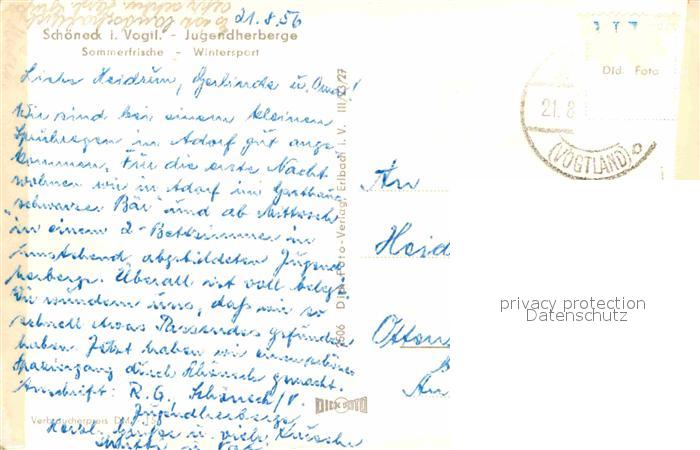 21.8.56
Schöneck i. Vogtl. - Jugendherberge
Sommerfrische - Wintersport
Liebe Heidrun, Gerlinde u. Oma!
Wir sind bei einem kleinen
Sprühregen in Adorf gut ange
kommen. Für die erste Nacht
wohnen wir in Adorf im Gasthaus
"schwarzer Bär" und ab Mittwoch
in einem 2-Bettzimmer in
umstehend abgebildeten Jugend
herberge. Überall ist voll belegt
Wir wundern uns, daß wir so
schnell etwas Passendes gefunden
haben. Jetzt haben wir einen
Spaziergang durch Schöneck gemacht.
Anschrift: R. G. Schöneck/V.
Jugendherberge
Verbraucherpreis DM
Herzl. Grüße u. viele Küsse
Mutti u.
Dick-Foto-Verlag, Erlbach i. V. III/23/27
DICK FOTO
An
Heid
Otten
An
Dld. Foto
21. 8
(VOGTLAND)
privacy protection
Datenschutz